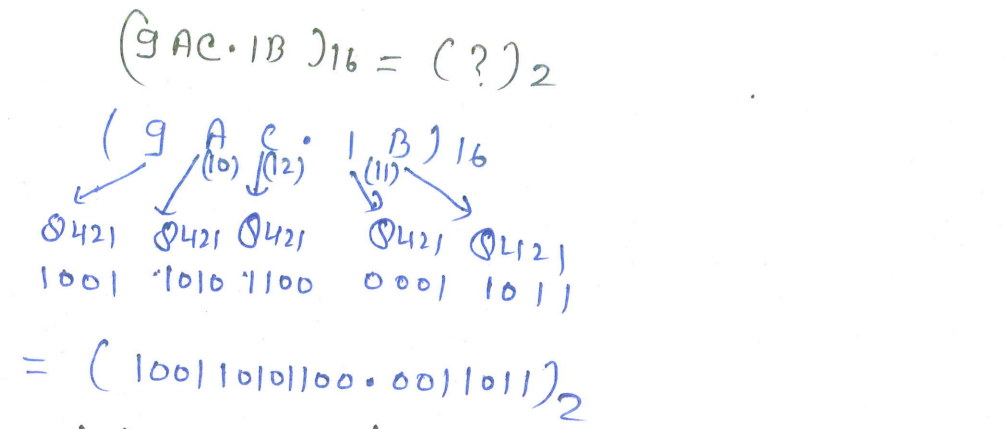 (9AC.1B)16 = (?)2
(9 A C . 1 B)16
(10) (12) (11)
8421 8421 8421 8421 8421
1001 1010 1100 0001 1011
= (100110101100.0011011)2